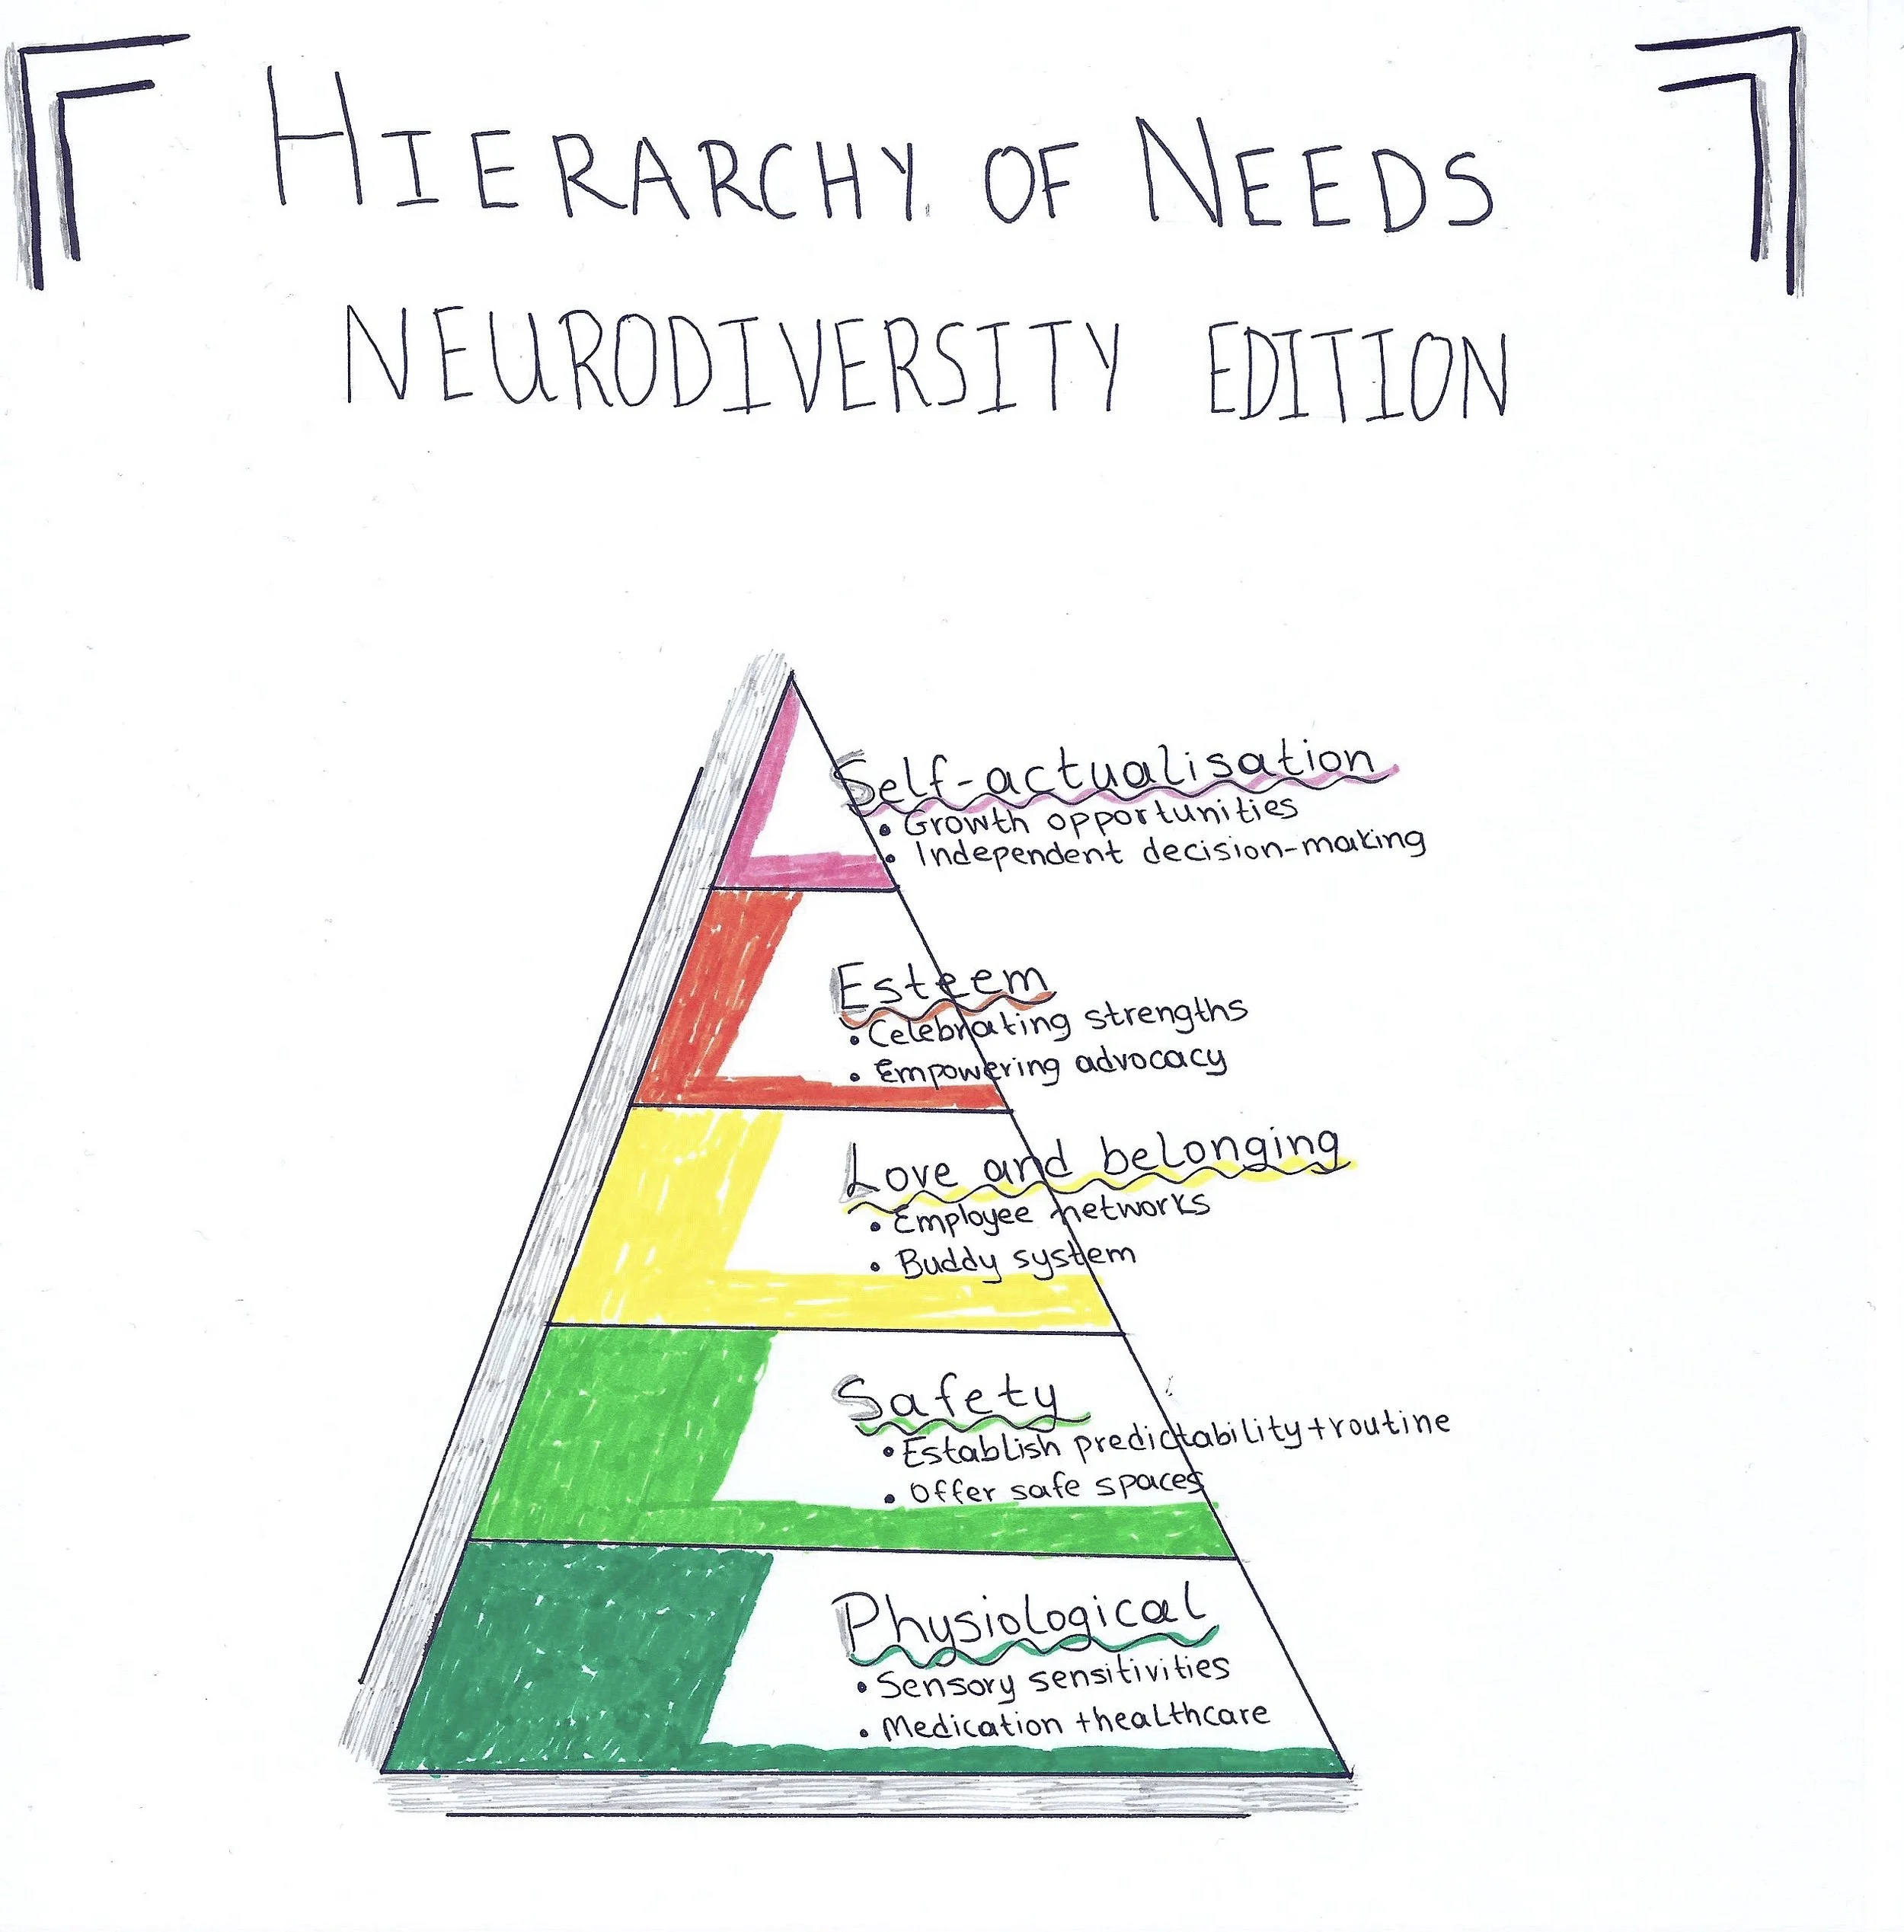 HIERARCHY OF NEEDS
NEURODIVERSITY EDITION
Self-actualisation
• Growth opportunities
• Independent decision-making
Esteem
• Celebrating strengths
• Empowering advocacy
Love and belonging
• Employee networks
• Buddy system
Safety
• Establish predictability+routine
• Offer safe spaces
Physiological
• Sensory sensitivities
• Medication +healthcare